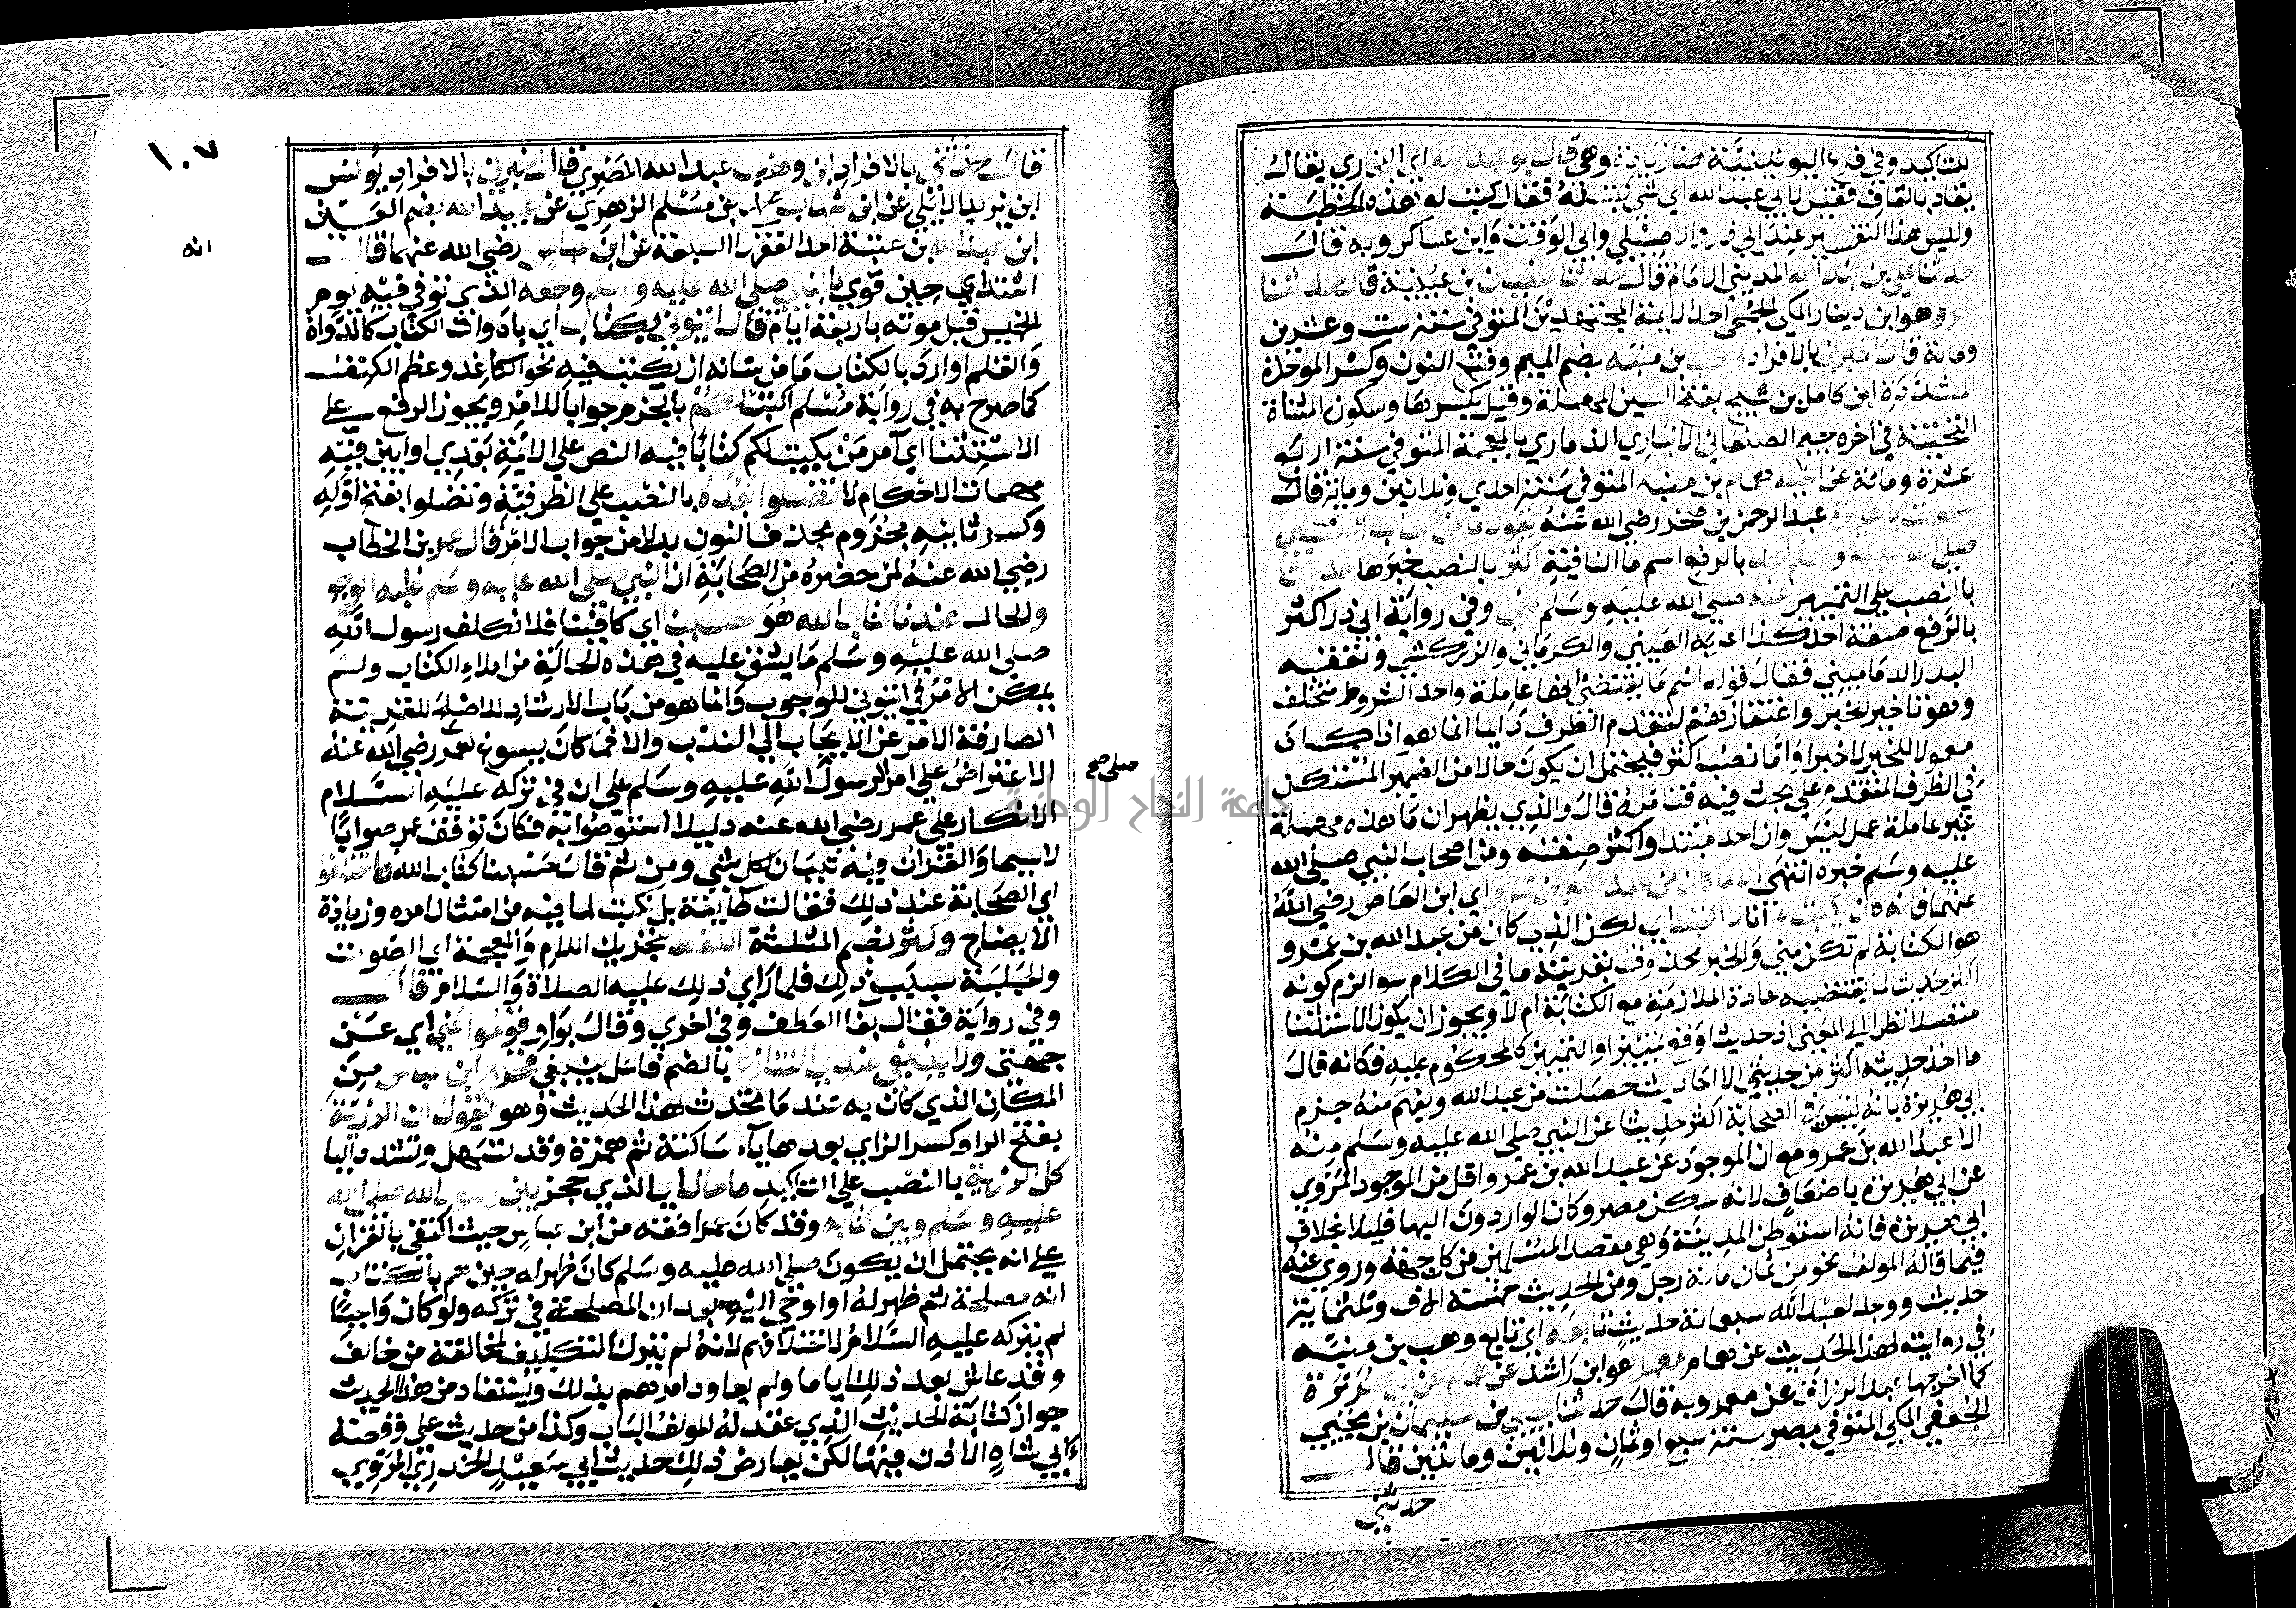 للتاكيد وفي فرع اليونينية هنا زيادة وهي قال ابو عبد الله اي البخاري يقال
يقاد بالقاف فقيل لابي عبد الله اي شي كتب له فقال كتب له هذه الخطبة
وليس هذا التفسير عند ابي ذر والاصيلي وابي الوقت وابن عساكر وبه قال
حدثنا علي بن عبد الله المديني الامام قال حدثنا سفيان بن عيينة قال حدثنا
عمرو هو ابن دينار المكي الجمحي احد الايمة المجتهدين المتوفي سنة ست وعشرين
وماية قال اخبرني بالافراد وهب بن منبه بضم الميم وفتح النون وكسر الموحدة
المشددة ابن كامل بن سيج بفتح السين المهملة وقيل بكسرها وسكون المثناة
التحتية في اخره جيم الصنعاني الانباري الذماري بالمعجمة المتوفي سنة اربع
عشرة وماية عن اخيه همام بن منبه المتوفي سنة احدي وثلاثين وماية قال
سمعت ابا هريرة عبد الرحمن بن صخر رضي الله عنه يقول ما من اصحاب النبي
صلي الله عليه وسلم احد بالرفع اسم ما النافية اكثر بالنصب خبرها حديثا
بالنصب علي التمييز عنه صلي الله عليه وسلم مني وفي رواية ابي ذر اكثر
بالرفع صفة احد كذا اعربه العيني والكرماني والزركشي وتعقبه
البدر الدماميني فقال قوله اسم ما يقتضي انها عاملة واحد الشروط متخلف
وهو تاخير الخبر واغتفارهم لتقدم الظرف دايما انما هو اذا كان
معمولا للخبر لا خبرا واما نصب اكثر فيحتمل ان يكون حالا من الضمير المستكن
في الظرف المتقدم علي بحث فيه فتامله قال والذي يظهر ان ما هذه مهملة
غير عاملة عمل ليس وان احد مبتدا واكثر صفته ومن اصحاب النبي صلي الله
عليه وسلم خبره انتهي الا ما كان من عبد الله بن عمرو اي ابن العاص رضي الله
عنهما فانه كان يكتب وانا لا اكتب اي لكن الذي كان من عبد الله بن عمرو
هو الكتابة لم تكن مني والخبر محذوف بقرينة ما في الكلام سوا لزم كونه
اكثر حديثا لما يقتضيه عادة الملازمة مع الكتابة ام لا ويجوز ان يكون الاستثنا
متصلا نظرا الي المعني اذ حديثا وقع تمييزا والتمييز كالمحكوم عليه فكانه قال
ما احد حديثه اكثر من حديثي الا احاديث حصلت من عبد الله ويفهم منه جزم
ابي هريرة بانه ليس في الصحابة اكثر حديثا عن النبي صلي الله عليه وسلم منه
الا عبد الله بن عمرو مع ان الموجود عن عبد الله بن عمرو اقل من الموجود المروي
عن ابي هريرة باضعاف لانه سكن مصر وكان الواردون اليها قليلا بخلاف
ابي هريرة فانه استوطن المدينة وهي مقصد المسلمين من كل جهة وروي عنه
فيما قاله المولف نحو من ثمان ماية رجل ومن الحديث خمسة الاف وثلثماية
حديث ووجد لعبد الله سبعماية حديث تابعه اي تابع وهب بن منبه
في روايته لهذا الحديث عن همام معمر هو ابن راشد عن همام عن ابي هريرة
كما اخرجها عبد الرزاق عن معمر وبه قال حدثنا يحيي بن سليمان بن يحيي
الجعفي المكي المتوفي بمصر سنة سبع او ثمان وثلاثين وماتين قال
حدثني
١٠٧
قال حدثني بالافراد ابن وهب عبد الله المصري قال اخبرني بالافراد يونس
ابن يزيد الايلي عن ابن شهاب محمد بن مسلم الزهري عن عبيد الله بضم العين
ابن عبد الله بن عتبة احد الفقها السبعة عن ابن عباس رضي الله عنهما قال
انه
اشتد اي حين قوي بالنبي صلي الله عليه وسلم وجعه الذي توفي فيه يوم
الخميس قبل موته باربعة ايام قال ايتوني بكتاب اي بادوات الكتاب كالدواة
والقلم او اراد بالكتاب ما من شانه ان يكتب فيه نحو الكاغد وعظم الكتف
كما صرح به في رواية مسلم اكتب لكم بالجزم جوابا للامر ويجوز الرفع علي
الاستئناف اي آمر من يكتب لكم كتابا فيه النص علي الايمة بعدي او ابين فيه
مهمات الاحكام لا تضلوا بعده بالنصب علي الظرفية وتضلوا بفتح اوله
وكسر ثانيه مجزوم بحذف النون بدلا من جواب الامر قال عمر بن الخطاب
رضي الله عنه لمن حضره من الصحابة ان النبي صلي الله عليه وسلم غلبه الوجع
والحال عندنا كتاب الله هو حسبنا اي كافينا فلا نكلف رسول الله
صلي الله عليه وسلم ما يشق عليه في هذه الحالة من املاء الكتاب ولم
يكن الامر في ايتوني للوجوب وانما هو من باب الارشاد للاصلح للقرينة
الصارفة الامر عن الايجاب الي الندب والا فما كان يسوغ لعمر رضي الله عنه
الاعتراض علي امر الرسول الله عليه وسلم علي ان في تركه عليه السلام
صلي صح
الانكار علي عمر رضي الله عنه دليلا استصوابه فكان توقف عمر صوابا
لاسيما والقران فيه تبيان لكل شي ومن ثم قال حسبنا كتاب الله فاختلفوا
اي الصحابة عند ذلك فقالت طايفة بل نكتب لما فيه من امتثال امره وزيادة
الايضاح وكثر بضم المثلثة اللغط بتحريك اللام والمعجمة اي الصوت
والجلبة بسبب ذلك فلما راي ذلك عليه الصلاة والسلام قال
وفي رواية فقال بفا العطف وفي اخري وقال بواو قوموا عني اي عن
جهتي ولا ينبغي عندي التنازع بالضم فاعل ينبغي فخرج ابن عباس من
المكان الذي كان به عند ما تحدث بهذا الحديث وهو يقول ان الرزية
بفتح الرا وكسر الزاي بعدها ياء ساكنة ثم همزة وقد تسهل وتشدد اليا
كل الرزية بالنصب علي التاكيد ما حال اي الذي حجز بين رسول الله صلي الله
عليه وسلم وبين كتابه وقد كان عمر افقه من ابن عباس حيث اكتفي بالقران
علي انه يحتمل ان يكون صلي الله عليه وسلم كان ظهر له حين هم بالكتاب
انه مصلحة ثم ظهر له او اوحي اليه بعد ان المصلحة في تركه ولو كان واجبا
لم يتركه عليه السلام لاختلافهم لانه لم يترك التكليف لمخالفة من خالف
وقد عاش بعد ذلك اياما ولم يعاود امرهم بذلك ويستفاد من هذا الحديث
جواز كتابة الحديث الذي عقد له المولف الباب وكذا من حديث علي وقصة
ابي شاه الاذن فيها لكن يعارض ذلك حديث ابي سعيد الخدري المروي
جامعة النجاح الوطنية